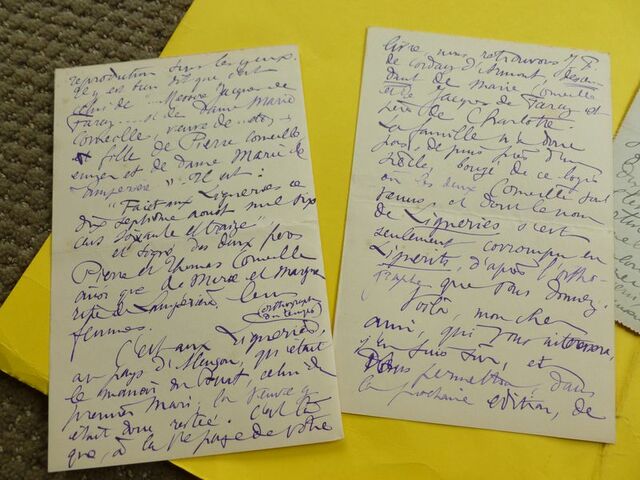 reproduction sous les yeux.
Il y est bien dit que c'est
celui de "Messire Jacques de
Farcy et de Dame Marie
Corneille, veuve de
fille de Pierre Corneille
escuyer et de Dame Marie de
Lamperiere". Il est :
"Fait aux Ligneries ce
dix septiesme aoust mil six
cens soixante et traize"
et signé des deux
Pierre et Thomas Corneille
ainsi que de Marie et Margue
rite de Lamperière, leurs
femmes. (orthographe
du temps)
C'est aux Ligneries,
au pays d'Alençon, qu'était
le manoir du , celui du
premier Mari; la veuve y
était donc restée. C'est là
que, à la 1re page de votre
livre, nous retrouvons J. F.
de Corday d'Armont, descen
dant de Marie Corneille
et de Jacques de Farcy et
père de Charlotte.
La famille n'a donc
pas, depuis près d'un
siècle, bougé de ce logis
où les deux Corneille sont
venus, et dont le nom
de Ligneries s'est
seulement corrompu en
Lignerits, d'après l'ortho-
graphe que vous donnez.
Voilà, mon cher
ami, qui vous intéressera,
j'en suis sûr, et
vous permettra, dans
la prochaine édition, de